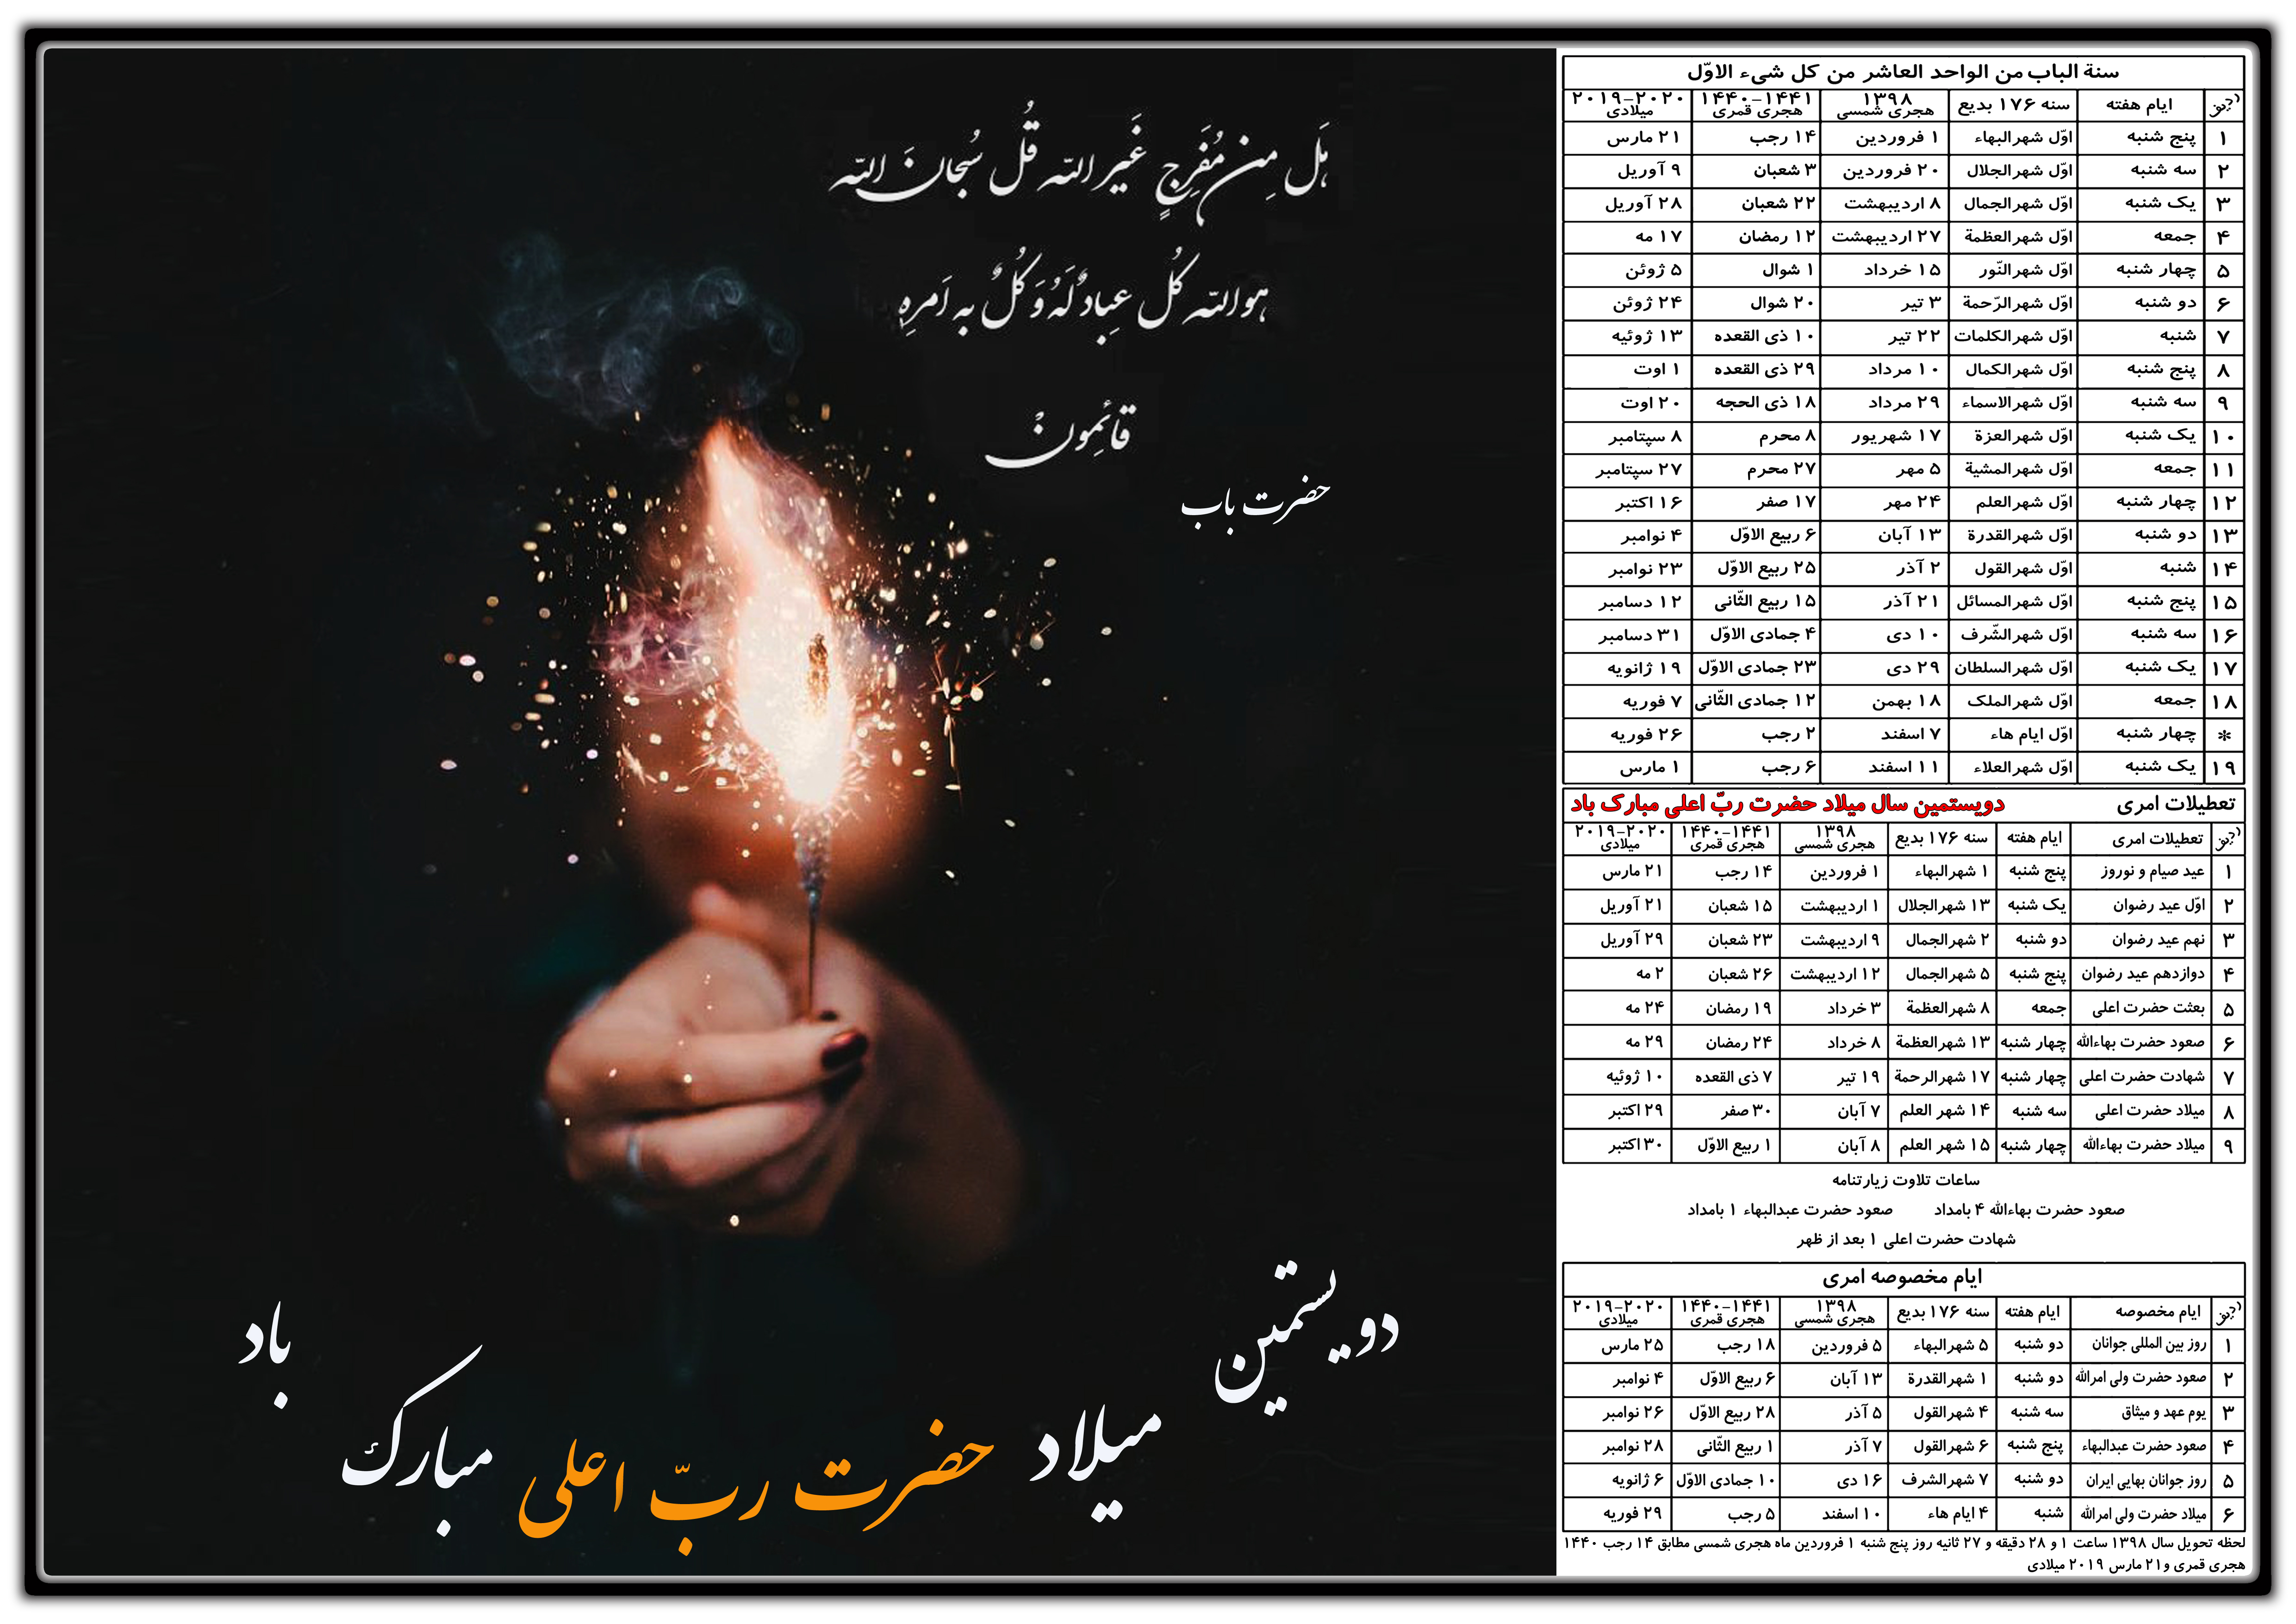 هَل مِن مُفَرِجٍ غَیر الله قُل سُبحانَ الله
هوالله کُل عِبادٌ لَهُ وَ کُلٌ به اَمرهِ
قائِمون
حضرت باب
دویستمین میلاد حضرت ربّ اعلی مبارک باد
سنة الباب من الواحد العاشر من کل شیء الاوّل
ردیف ایام هفته سنه ۱۷۶ بدیع ۱۳۹۸ هجری شمسی ۱۴۴۰-۱۴۴۱ هجری قمری ۲۰۱۹-۲۰۲۰ میلادی
۱ پنج شنبه اوّل شهرالبهاء ۱ فروردین ۱۴ رجب ۲۱ مارس
۲ سه شنبه اوّل شهرالجلال ۲۰ فروردین ۳ شعبان ۹ آوریل
۳ یک شنبه اوّل شهرالجمال ۸ اردیبهشت ۲۲ شعبان ۲۸ آوریل
۴ جمعه اوّل شهرالعظمة ۲۷ اردیبهشت ۱۲ رمضان ۱۷ مه
۵ چهار شنبه اوّل شهرالنّور ۱۵ خرداد ۱ شوال ۵ ژوئن
۶ دو شنبه اوّل شهرالرّحمة ۳ تیر ۲۰ شوال ۲۴ ژوئن
۷ شنبه اوّل شهرالکلمات ۲۲ تیر ۱۰ ذی القعده ۱۳ ژوئیه
۸ پنج شنبه اوّل شهرالکمال ۱۰ مرداد ۲۹ ذی القعده ۱ اوت
۹ سه شنبه اوّل شهرالاسماء ۲۹ مرداد ۱۸ ذی الحجه ۲۰ اوت
۱۰ یک شنبه اوّل شهرالعزة ۱۷ شهریور ۸ محرم ۸ سپتامبر
۱۱ جمعه اوّل شهرالمشیة ۵ مهر ۲۷ محرم ۲۷ سپتامبر
۱۲ چهار شنبه اوّل شهرالعلم ۲۴ مهر ۱۷ صفر ۱۶ اکتبر
۱۳ دو شنبه اوّل شهرالقدرة ۱۳ آبان ۶ ربیع الاوّل ۴ نوامبر
۱۴ شنبه اوّل شهرالقول ۲ آذر ۲۵ ربیع الاوّل ۲۳ نوامبر
۱۵ پنج شنبه اوّل شهرالمسائل ۲۱ آذر ۱۵ ربیع الثّانی ۱۲ دسامبر
۱۶ سه شنبه اوّل شهرالشّرف ۱۰ دی ۴ جمادی الاوّل ۳۱ دسامبر
۱۷ یک شنبه اوّل شهرالسلطان ۲۹ دی ۲۳ جمادی الاوّل ۱۹ ژانویه
۱۸ جمعه اوّل شهرالملک ۱۸ بهمن ۱۲ جمادی الثّانی ۷ فوریه
* چهار شنبه اوّل ایام هاء ۷ اسفند ۲ رجب ۲۶ فوریه
۱۹ یک شنبه اوّل شهرالعلاء ۱۱ اسفند ۶ رجب ۱ مارس
تعطیلات امری دویستمین سال میلاد حضرت ربّ اعلی مبارک باد
ردیف تعطیلات امری ایام هفته سنه ۱۷۶ بدیع ۱۳۹۸ هجری شمسی ۱۴۴۰-۱۴۴۱ هجری قمری ۲۰۱۹-۲۰۲۰ میلادی
۱ عید صیام و نوروز پنج شنبه ۱ شهرالبهاء ۱ فروردین ۱۴ رجب ۲۱ مارس
۲ اوّل عید رضوان یک شنبه ۱۳ شهرالجلال ۱ اردیبهشت ۱۵ شعبان ۲۱ آوریل
۳ نهم عید رضوان دو شنبه ۲ شهرالجمال ۹ اردیبهشت ۲۳ شعبان ۲۹ آوریل
۴ دوازدهم عید رضوان پنج شنبه ۵ شهرالجمال ۱۲ اردیبهشت ۲۶ شعبان ۲ مه
۵ بعثت حضرت اعلی جمعه ۸ شهرالعظمة ۳ خرداد ۱۹ رمضان ۲۴ مه
۶ صعود حضرت بهاءالله چهار شنبه ۱۳ شهرالعظمة ۸ خرداد ۲۴ رمضان ۲۹ مه
۷ شهادت حضرت اعلی چهار شنبه ۱۷ شهرالرحمة ۱۹ تیر ۷ ذی القعده ۱۰ ژوئیه
۸ میلاد حضرت اعلی سه شنبه ۱۴ شهر العلم ۷ آبان ۳۰ صفر ۲۹ اکتبر
۹ میلاد حضرت بهاءالله چهار شنبه ۱۵ شهر العلم ۸ آبان ۱ ربیع الاوّل ۳۰ اکتبر
ساعات تلاوت زیارتنامه
صعود حضرت بهاءالله ۴ بامداد صعود حضرت عبدالبهاء ۱ بامداد
شهادت حضرت اعلی ۱ بعد از ظهر
ایام مخصوصه امری
ردیف ایام مخصوصه ایام هفته سنه ۱۷۶ بدیع ۱۳۹۸ هجری شمسی ۱۴۴۰-۱۴۴۱ هجری قمری ۲۰۱۹-۲۰۲۰ میلادی
۱ روز بین المللی جوانان دو شنبه ۵ شهرالبهاء ۵ فروردین ۱۸ رجب ۲۵ مارس
۲ صعود حضرت ولی امرالله دو شنبه ۱ شهرالقدرة ۱۳ آبان ۶ ربیع الاوّل ۴ نوامبر
۳ یوم عهد و میثاق سه شنبه ۴ شهرالقول ۵ آذر ۲۸ ربیع الاوّل ۲۶ نوامبر
۴ صعود حضرت عبدالبهاء پنج شنبه ۶ شهرالقول ۷ آذر ۱ ربیع الثّانی ۲۸ نوامبر
۵ روز جوانان بهایی ایران دو شنبه ۷ شهرالشرف ۱۶ دی ۱۰ جمادی الاوّل ۶ ژانویه
۶ میلاد حضرت ولی امرالله شنبه ۴ ایام هاء ۱۰ اسفند ۵ رجب ۲۹ فوریه
لحظه تحویل سال ۱۳۹۸ ساعت ۱ و ۲۸ دقیقه و ۲۷ ثانیه روز پنج شنبه ۱ فروردین ماه هجری شمسی مطابق ۱۴ رجب ۱۴۴۰
هجری قمری و۲۱ مارس ۲۰۱۹ میلادی